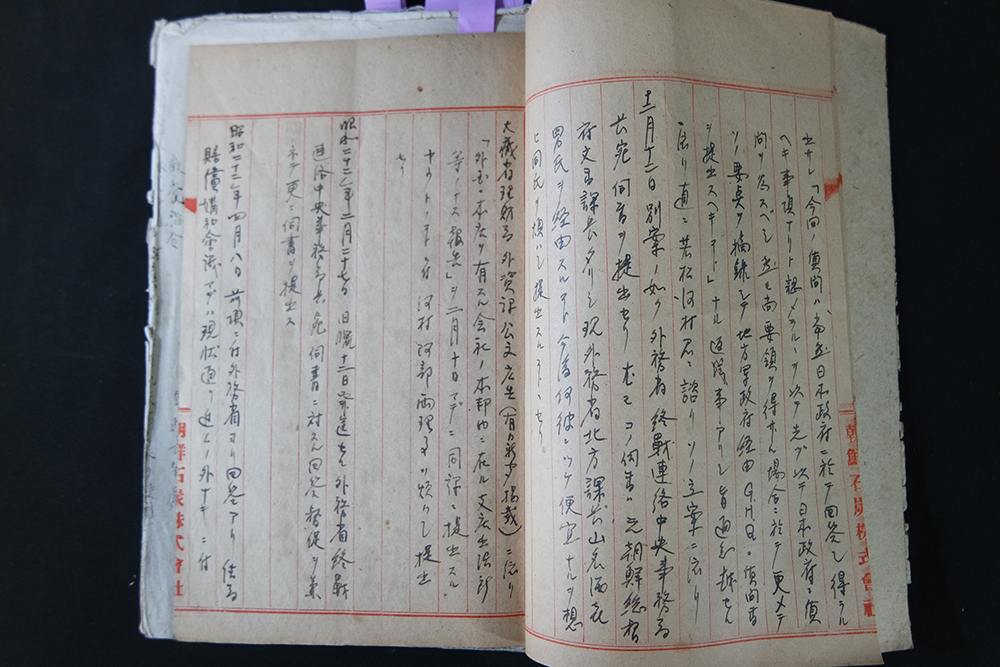 出サレ「今回ノ質問ハ当然日本政府ニ於テ回答シ得ラル
ヘキ事項ナリト認メラルヽヲ以テ先ヅ以テ日本政府ニ質
問ヲ為スベシ 尚要領ヲ得サル場合ニ於テ更メテ
ソノ要点ヲ摘録シテ地方軍政府経由G.H.Q.ニ質問書
ヲ提出スヘキコト」ナル返牒事アリシ旨通知越セル
ニ依リ直ニ若松河村君ニ諮リソノ立案ニ依リ
十二月十二日 別案ノ如ク外務省終戦連絡中央事務局
長宛伺書ヲ提出セリ 尤モコノ伺書ハ元朝鮮総督
府文書課長タリシ現外務省北方課長山名酒喜
男氏ヲ経由スルコト今後何彼ニツケ便宜ナルヲ想
ヒ同氏ヲ煩ハシ提出スルコトヽセリ
朝鮮石炭株式會社
大蔵省理財局外資課公文広告(有力新聞掲載)ニ依リ
「外国ニ本店ヲ有スル会社ノ本邦内ニ在ル支店出張所
等ノナス報告」ヲ二月十日マデニ同課ニ提出スル
コトヽナリ 河村阿部両理事ヲ煩ハシ提出
セリ
昭和二十二年二月二十七日 旧臘十二日発送セル外務省終戦
連絡中央事務局長宛伺書ニ対スル回答督促ヲ兼
ネテ更ニ伺書ヲ提出ス
昭和二十二年四月八日 前項ニ付外務省ヨリ回答アリ 依而
賠償講和会議マデハ現状通リ進ムノ外ナキニ付
朝鮮石炭株式會社